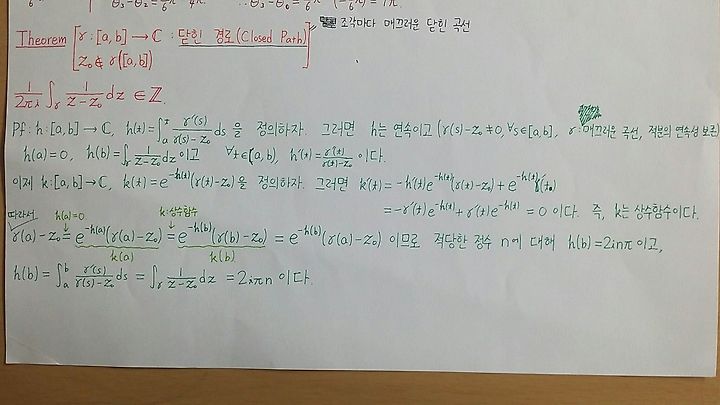 Theorem [γ: [a, b] → ℂ : 닫힌 경로(Closed Path) 조각마다 매끄러운 닫힌 곡선
z₀ ∉ γ([a, b])]
1/2πi ∫_γ 1/(z-z₀) dz ∈ ℤ.
Pf: h: [a, b] → ℂ, h(t) = ∫_a^t γ'(s)/(γ(s)-z₀) ds 을 정의하자. 그러면 h는 연속이고 (γ(s)-z₀ ≠ 0, ∀s∈[a, b], γ: 매끄러운 곡선, 적분의 연속성 보존)
h(a) = 0, h(b) = ∫_γ 1/(z-z₀) dz 이고 ∀t∈[a, b], h'(t) = γ'(t)/(γ(t)-z₀) 이다.
이제 k: [a, b] → ℂ, k(t) = e^{-h(t)}(γ(t)-z₀)을 정의하자. 그러면 k'(t) = -h'(t)e^{-h(t)}(γ(t)-z₀) + e^{-h(t)}γ'(t)
= -γ'(t)e^{-h(t)} + γ'(t)e^{-h(t)} = 0 이다. 즉, k는 상수함수이다.
따라서 h(a)=0 k:상수함수
γ(a)-z₀ = e^{-h(a)}(γ(a)-z₀) = e^{-h(b)}(γ(b)-z₀) = e^{-h(b)}(γ(a)-z₀) 이므로 적당한 정수 n에 대해 h(b) = 2inπ 이고,
k(a) k(b)
h(b) = ∫_a^b γ'(s)/(γ(s)-z₀) ds = ∫_γ 1/(z-z₀) dz = 2iπn 이다.